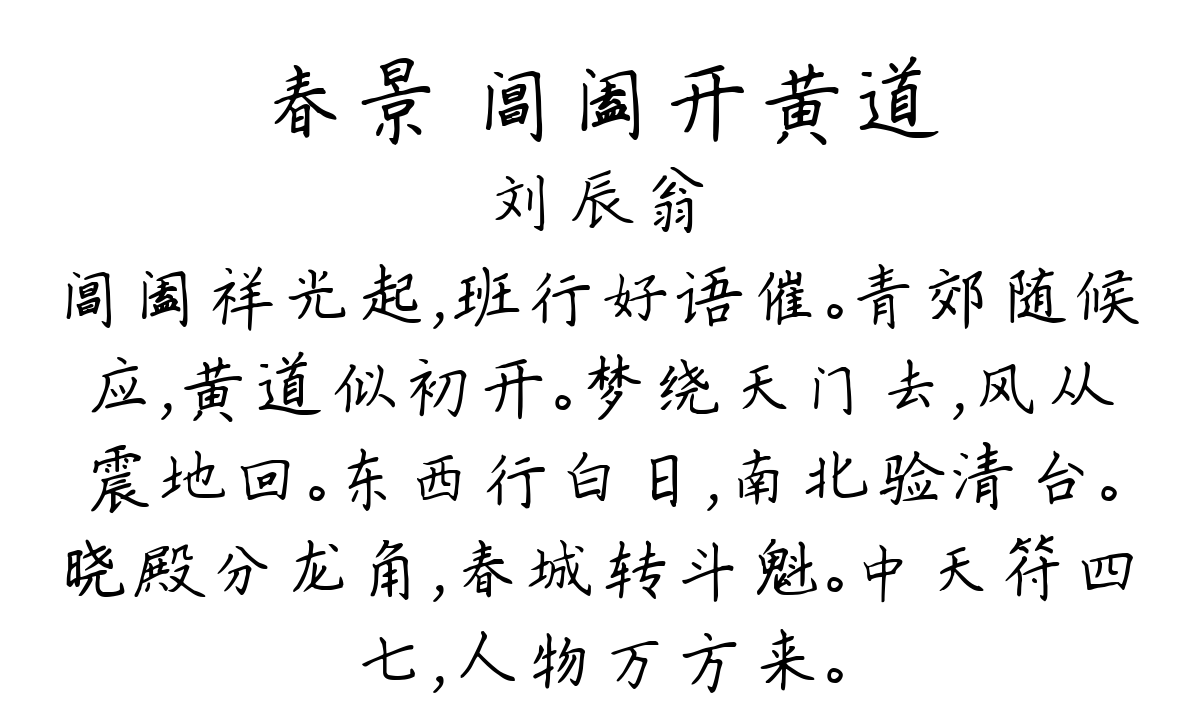 春景 阊阖开黄道
刘辰翁
阊阖祥光起,班行好语催。青郊随候
应,黄道似初开。梦绕天门去,风从
震地回。东西行白日,南北验清台。
晓殿分龙角,春城转斗魁。中天符四
七,人物万方来。